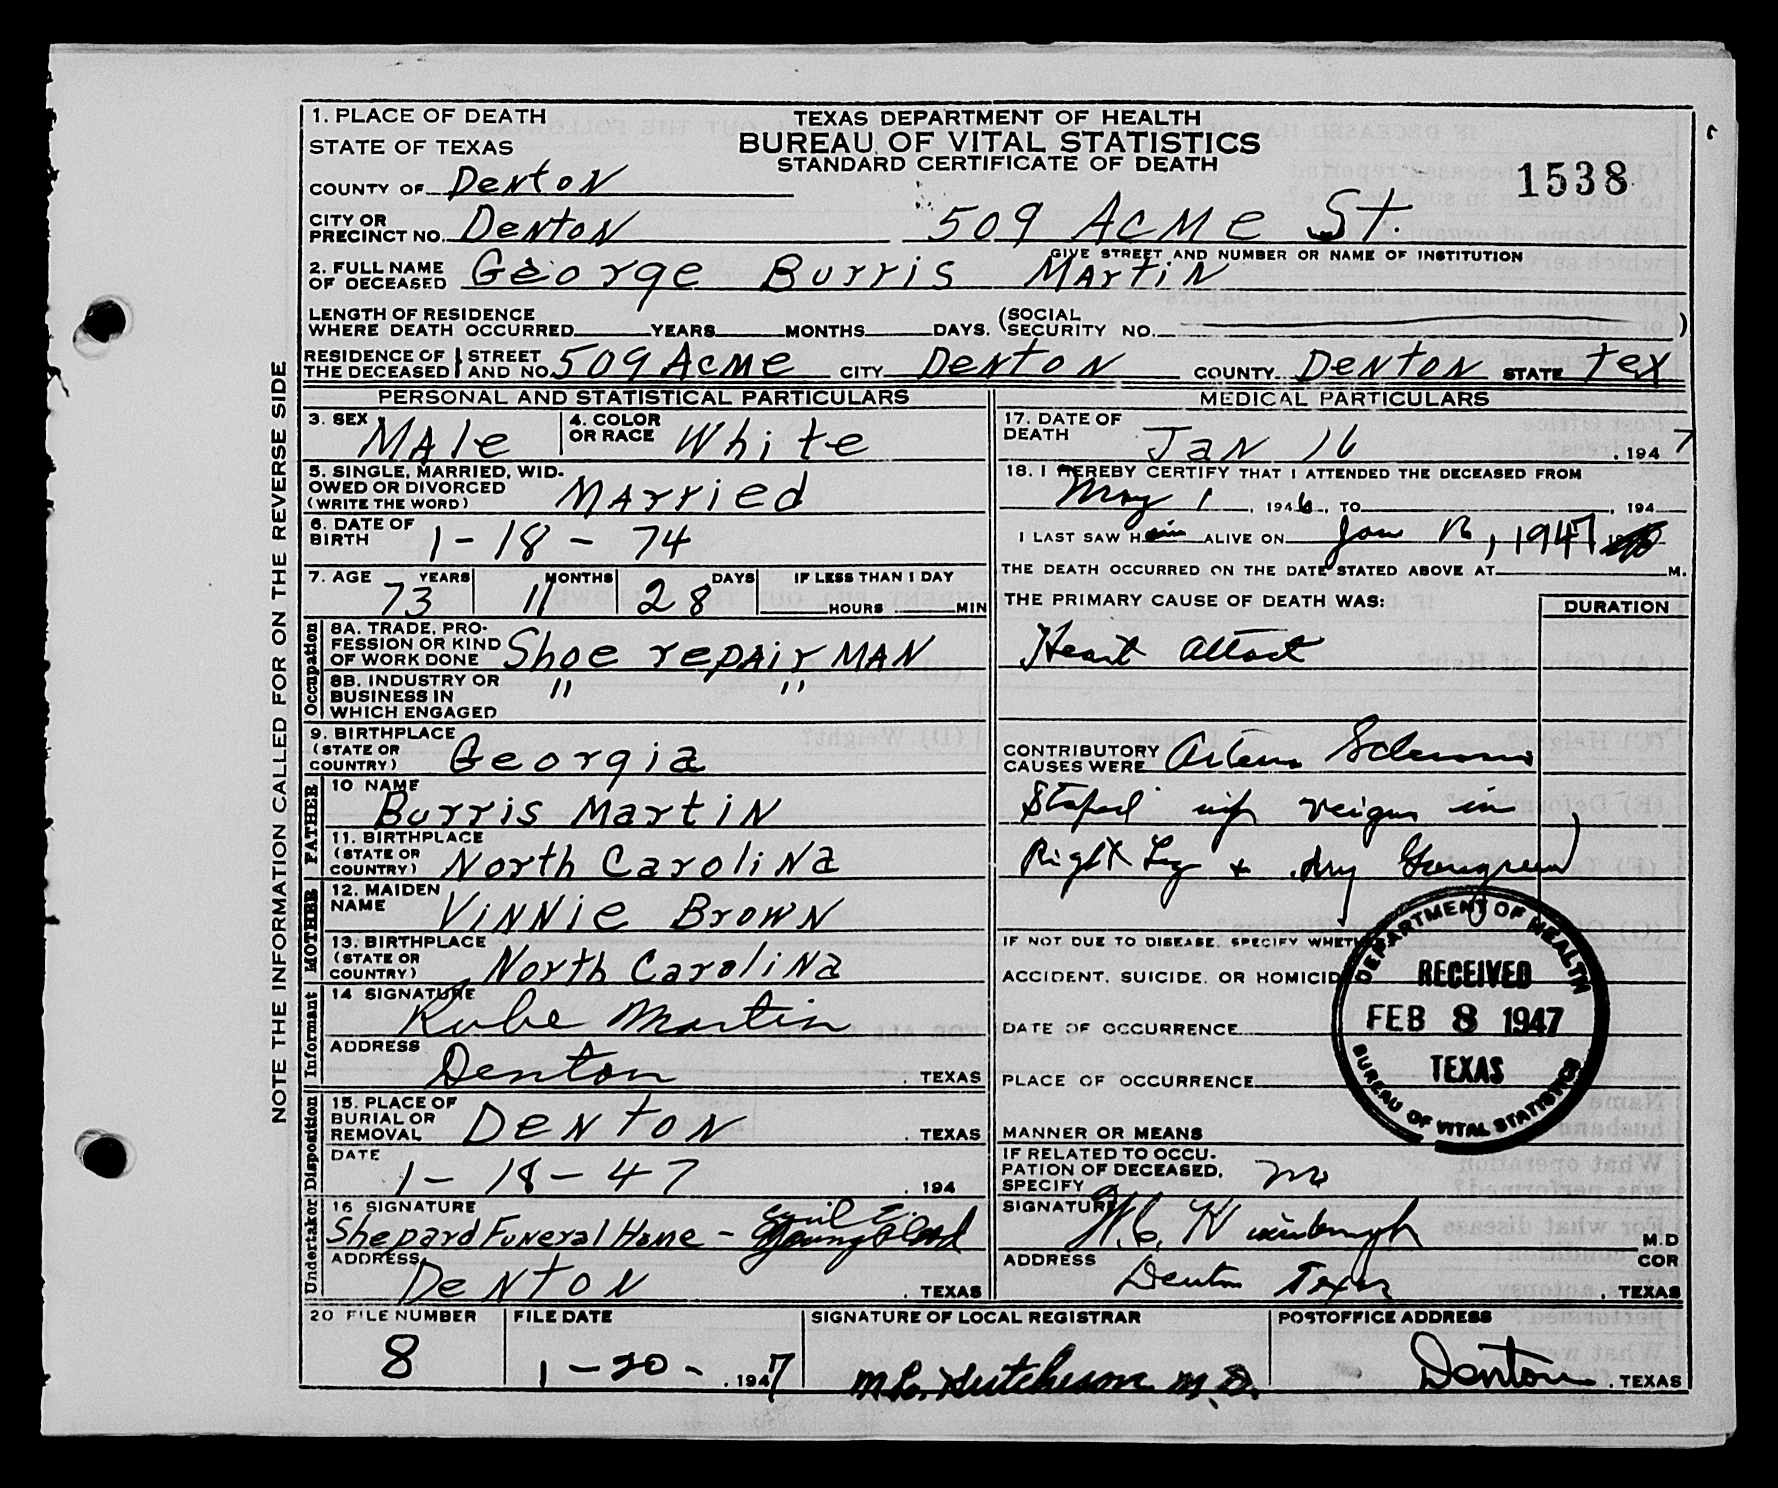 1. PLACE OF DEATH
STATE OF TEXAS
COUNTY OF Denton
CITY OR PRECINCT NO. Denton
TEXAS DEPARTMENT OF HEALTH
BUREAU OF VITAL STATISTICS
STANDARD CERTIFICATE OF DEATH
1538
509 Acme St.
GIVE STREET AND NUMBER OR NAME OF INSTITUTION
2. FULL NAME OF DECEASED George Burris Martin
LENGTH OF RESIDENCE WHERE DEATH OCCURRED YEARS MONTHS DAYS. (SOCIAL SECURITY NO. )
RESIDENCE OF THE DECEASED } STREET AND NO. 509 Acme CITY Denton COUNTY Denton STATE Tex
NOTE THE INFORMATION CALLED FOR ON THE REVERSE SIDE
PERSONAL AND STATISTICAL PARTICULARS
3. SEX Male
4. COLOR OR RACE White
5. SINGLE, MARRIED, WIDOWED OR DIVORCED (WRITE THE WORD) Married
6. DATE OF BIRTH 1-18-74
7. AGE 73 YEARS 11 MONTHS 28 DAYS IF LESS THAN 1 DAY HOURS MIN
Occupation
8A. TRADE, PROFESSION OR KIND OF WORK DONE Shoe repair man
8B. INDUSTRY OR BUSINESS IN WHICH ENGAGED " "
9. BIRTHPLACE (STATE OR COUNTRY) Georgia
FATHER
10 NAME Burris Martin
11. BIRTHPLACE (STATE OR COUNTRY) North Carolina
MOTHER
12. MAIDEN NAME Vinnie Brown
13. BIRTHPLACE (STATE OR COUNTRY) North Carolina
Informant
14 SIGNATURE Rube Martin
ADDRESS Denton , TEXAS
Disposition
15. PLACE OF BURIAL OR REMOVAL Denton , TEXAS
DATE 1-18-47 , 194
Undertaker
16 SIGNATURE Shepard Funeral Home - Youngblood
ADDRESS Denton , TEXAS
MEDICAL PARTICULARS
17. DATE OF DEATH Jan 16 , 1947
18. I HEREBY CERTIFY THAT I ATTENDED THE DECEASED FROM
May 1 , 1946, TO , 194
I LAST SAW Him ALIVE ON Jan , 1947
THE DEATH OCCURRED ON THE DATE STATED ABOVE AT M.
THE PRIMARY CAUSE OF DEATH WAS: DURATION
Heart attact
CONTRIBUTORY CAUSES WERE
in
Right Leg + dry
IF NOT DUE TO DISEASE, SPECIFY
ACCIDENT, SUICIDE, OR HOMICID
DATE OF OCCURRENCE
PLACE OF OCCURRENCE
MANNER OR MEANS
DEPARTMENT OF HEALTH
RECEIVED
FEB 8 1947
TEXAS
BUREAU OF VITAL STATISTICS
IF RELATED TO OCCUPATION OF DECEASED, SPECIFY no
SIGNATURE M.D
ADDRESS Denton Texas COR , TEXAS
20 FILE NUMBER 8
FILE DATE 1-20- , 1947
SIGNATURE OF LOCAL REGISTRAR Hutcheson M.D.
POSTOFFICE ADDRESS Denton , TEXAS